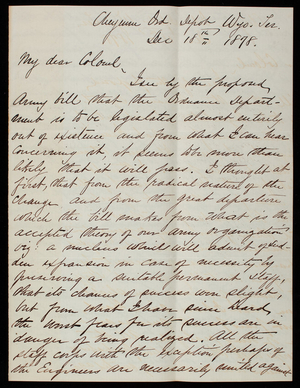 Cheyenne Ord Depot Wyo. Ter.
Dec 18th 1878.
My dear Colonel,
I see by the proposed
Army bill that the Ordnance Depart-
ment is to be legislated almost entirely
out of existence and from what I can hear
concerning it, it seems to be more than
likely that it will pass. I thought at
first, that from the radical nature of the
change and from the great departure
which the bill makes from what is the
accepted theory of our army organization
viz; a nucleus which will admit of sud-
den expansion in case of necessity by
preserving a suitable permanent staff,
that its chances of success were slight,
but from what I have since heard,
the worst fears for its success are in
danger of being realized. All the
staff corps with the exception perhaps of
the Engineers are necessarily united against